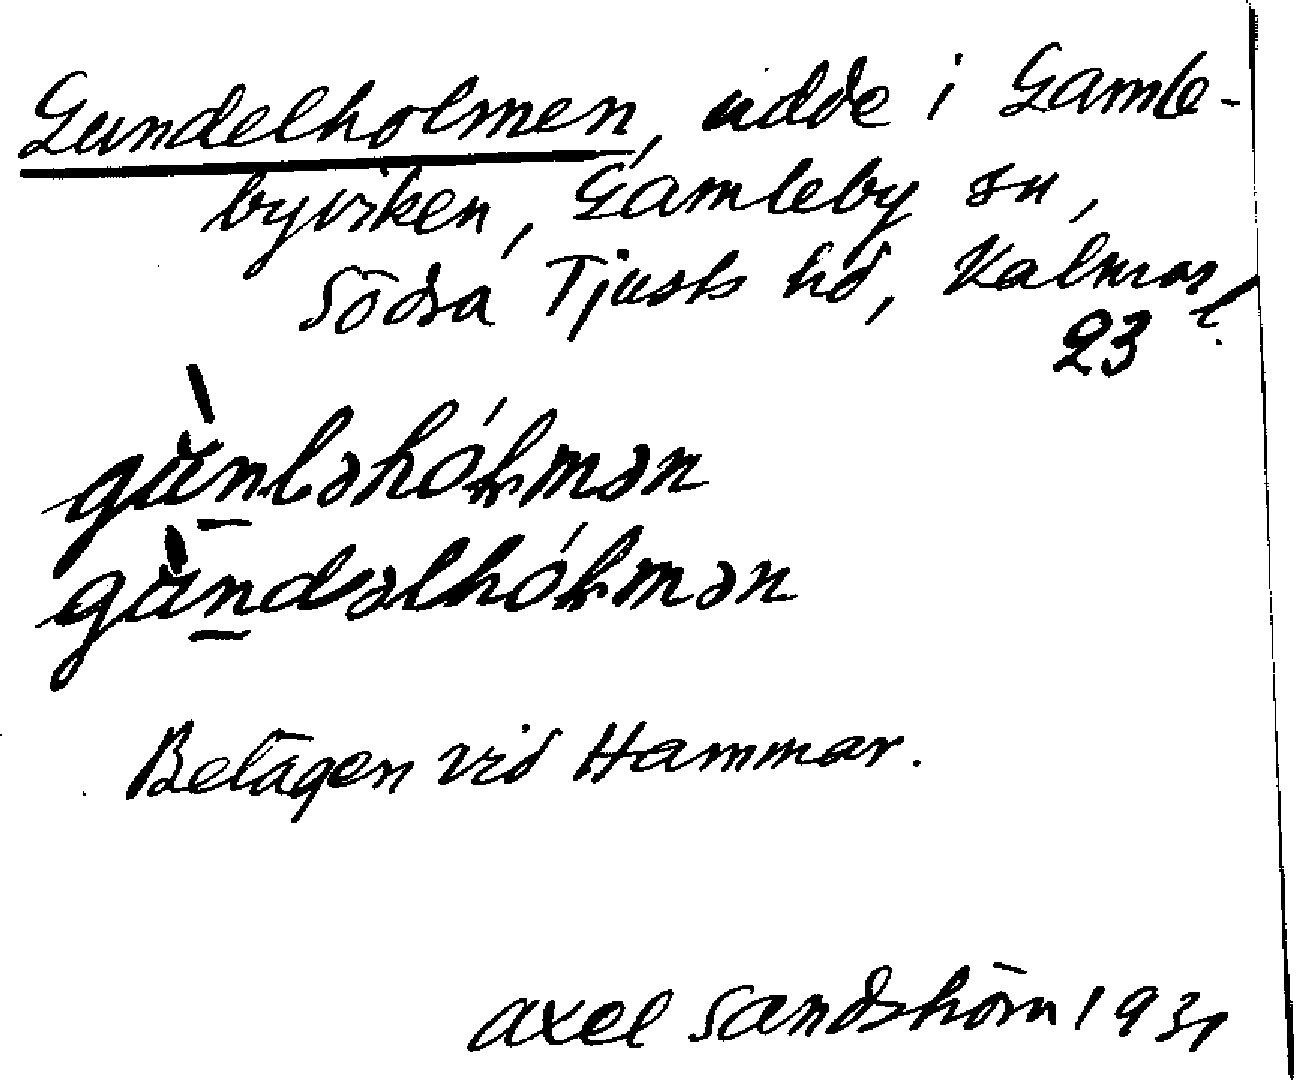 Gundelholmen, udde i Gamle-
byviken, Gamleby sn,
Södra Tjusts hd, Kalmar l.
23
gùnləhólmən
gùndəlhólmən
Belägen vid Hammar.
Axel Sandström 1931